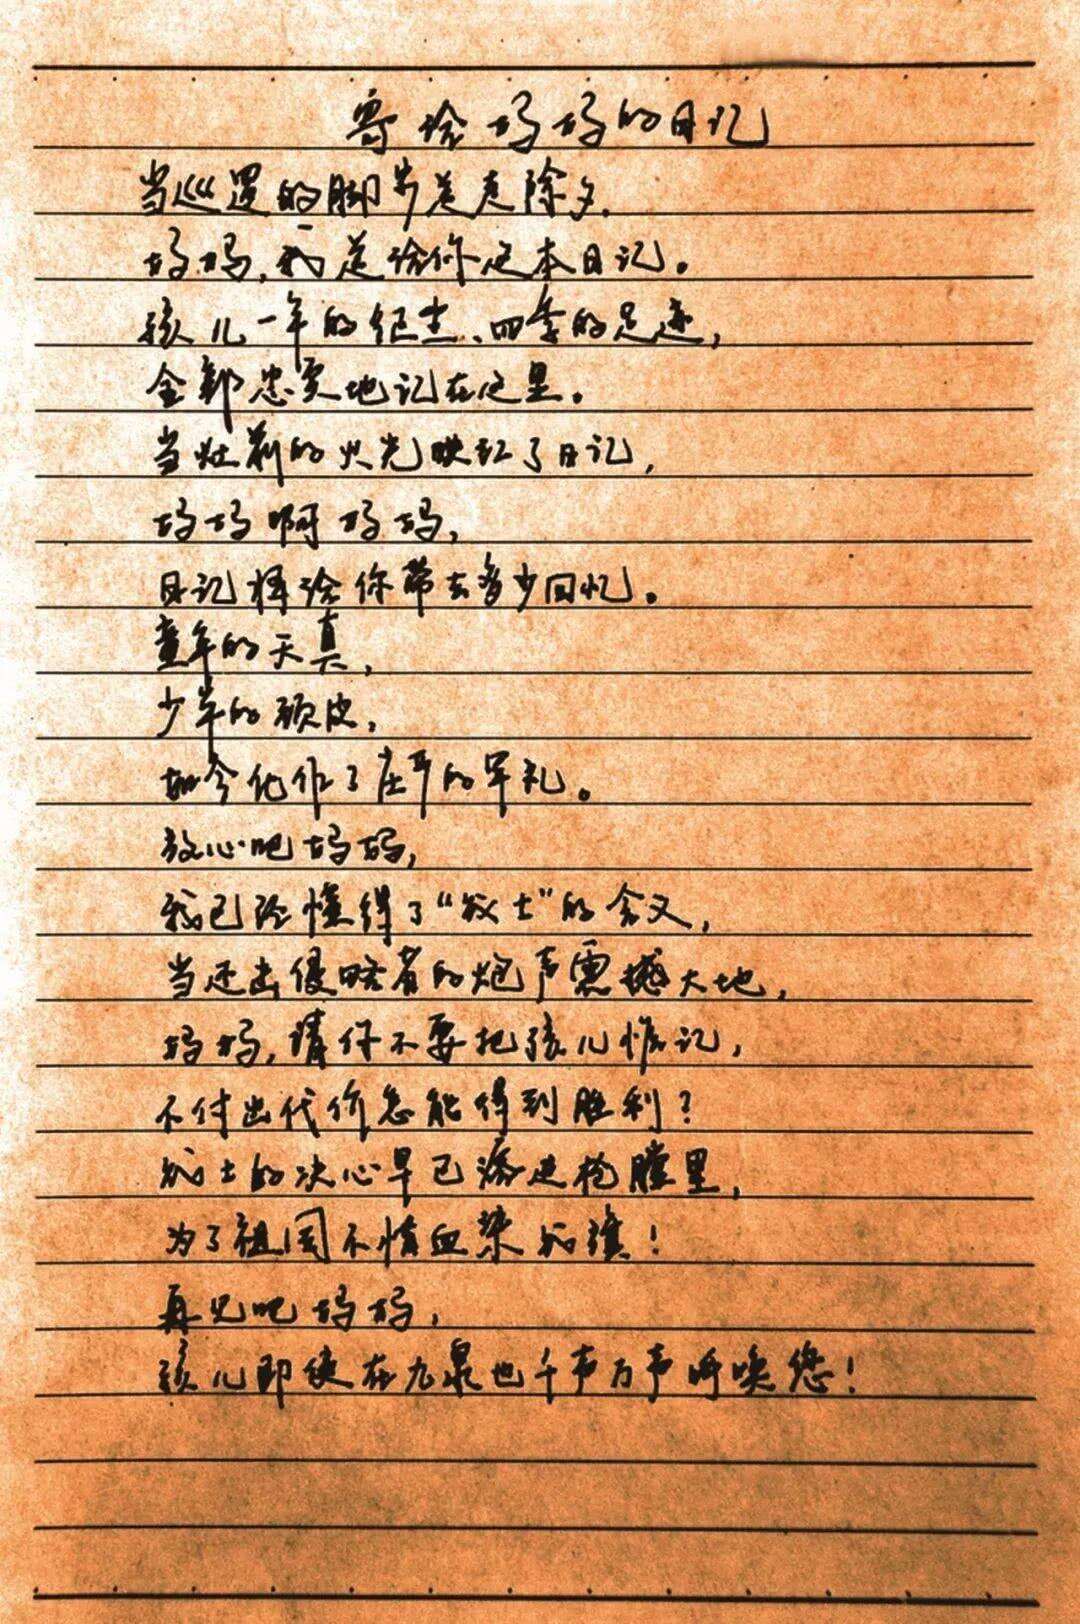 寄给妈妈的日记
当巡逻的脚步送走除夕.
妈妈,我送给你这本日记。
孩儿一年的征尘、四季的足迹,
全部忠实地记在这里。
当灶前的火光映红了日记,
妈妈啊妈妈,
日记将给你带去多少回忆。
童年的天真,
少年的顽皮,
如今化作了庄严的军礼。
放心吧妈妈,
我已经懂得了“战士”的含义,
当还击侵略者的炮声震撼大地,
妈妈,请你不要把孩儿惦记,
不付出代价怎能得到胜利?
战士的决心早已溶进枪膛里,
为了祖国不惜血染战旗!
再见吧妈妈,
孩儿即使在九泉也千声万声呼唤您!